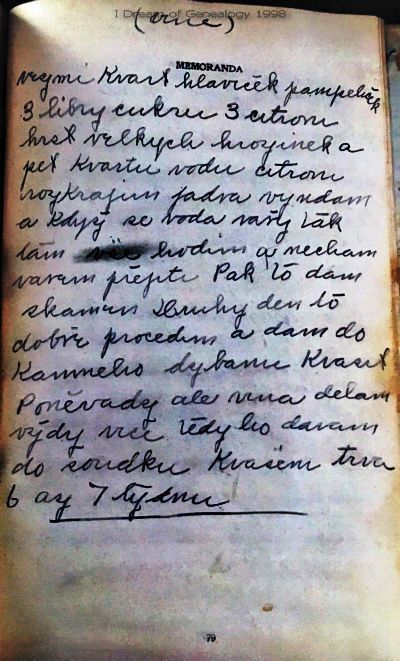 I Dream of Genealogy 1998
(vino)
MEMORANDA
vezmi Kvart hlaviček pampelišek
3 libry cukru 3 citrony
hrst velkych hrozinek a
pet Kvartu vodu citron
rozkrajim jadra vyndam
a Kdyz se voda vaři tak
tam hodim a necham
varem přejiti Pak to dam
Druhy den to
dobře procedim a dam do
Kamneho dzbanu Kvasit
Poněvadz ale vina delam
vzdy vice tedy ho davam
do soudku Kvašeni trva
6 az 7 tydnu
79